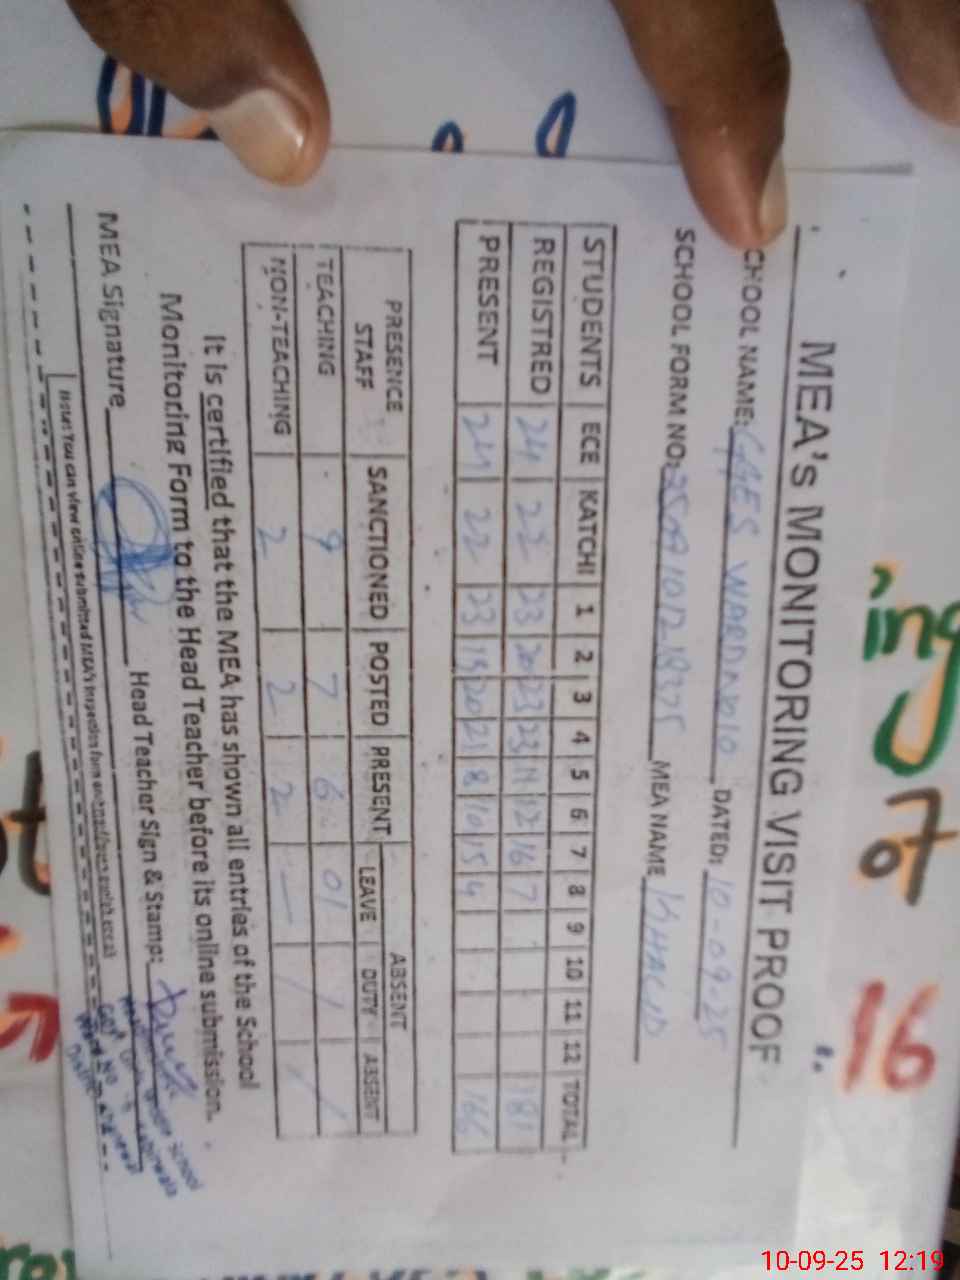 MEA's MONITORING VISIT PROOF
CHOOL NAME: GGES WARD NO 10 DATED: 10-09-25
SCHOOL FORM NO: MEA NAME KHALID
STUDENTS ECE KATCHI 1 2 3 4 5 6 7 8 9 10 11 12 TOTAL
REGISTRED 24 22 23 20 23 23 11 12 16 7 181
PRESENT 24 22 23 19 20 21 8 10 15 4 166
PRESENCE STAFF SANCTIONED POSTED PRESENT ABSENT
LEAVE DUTY ABSENT
TEACHING 9 7 6 01 / /
NON-TEACHING 2 2 2 — / /
It is certified that the MEA has shown all entries of the School
Monitoring Form to the Head Teacher before its online submission.
MEA Signature Head Teacher Sign & Stamp:
Note: You can view online submitted MEA's inspection form on
School
ing
of
16
10-09-25 12:19